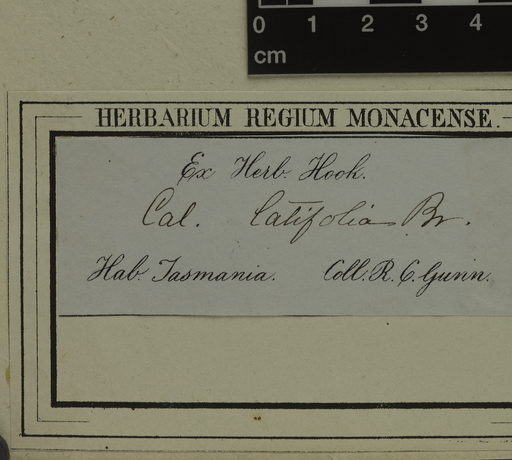 0 1 2 3 4
cm
HERBARIUM REGIUM MONACENSE.
Ex Herb. Hook.
Cal. latifolia Br.
Hab. Tasmania. Coll. R. C. Gunn.